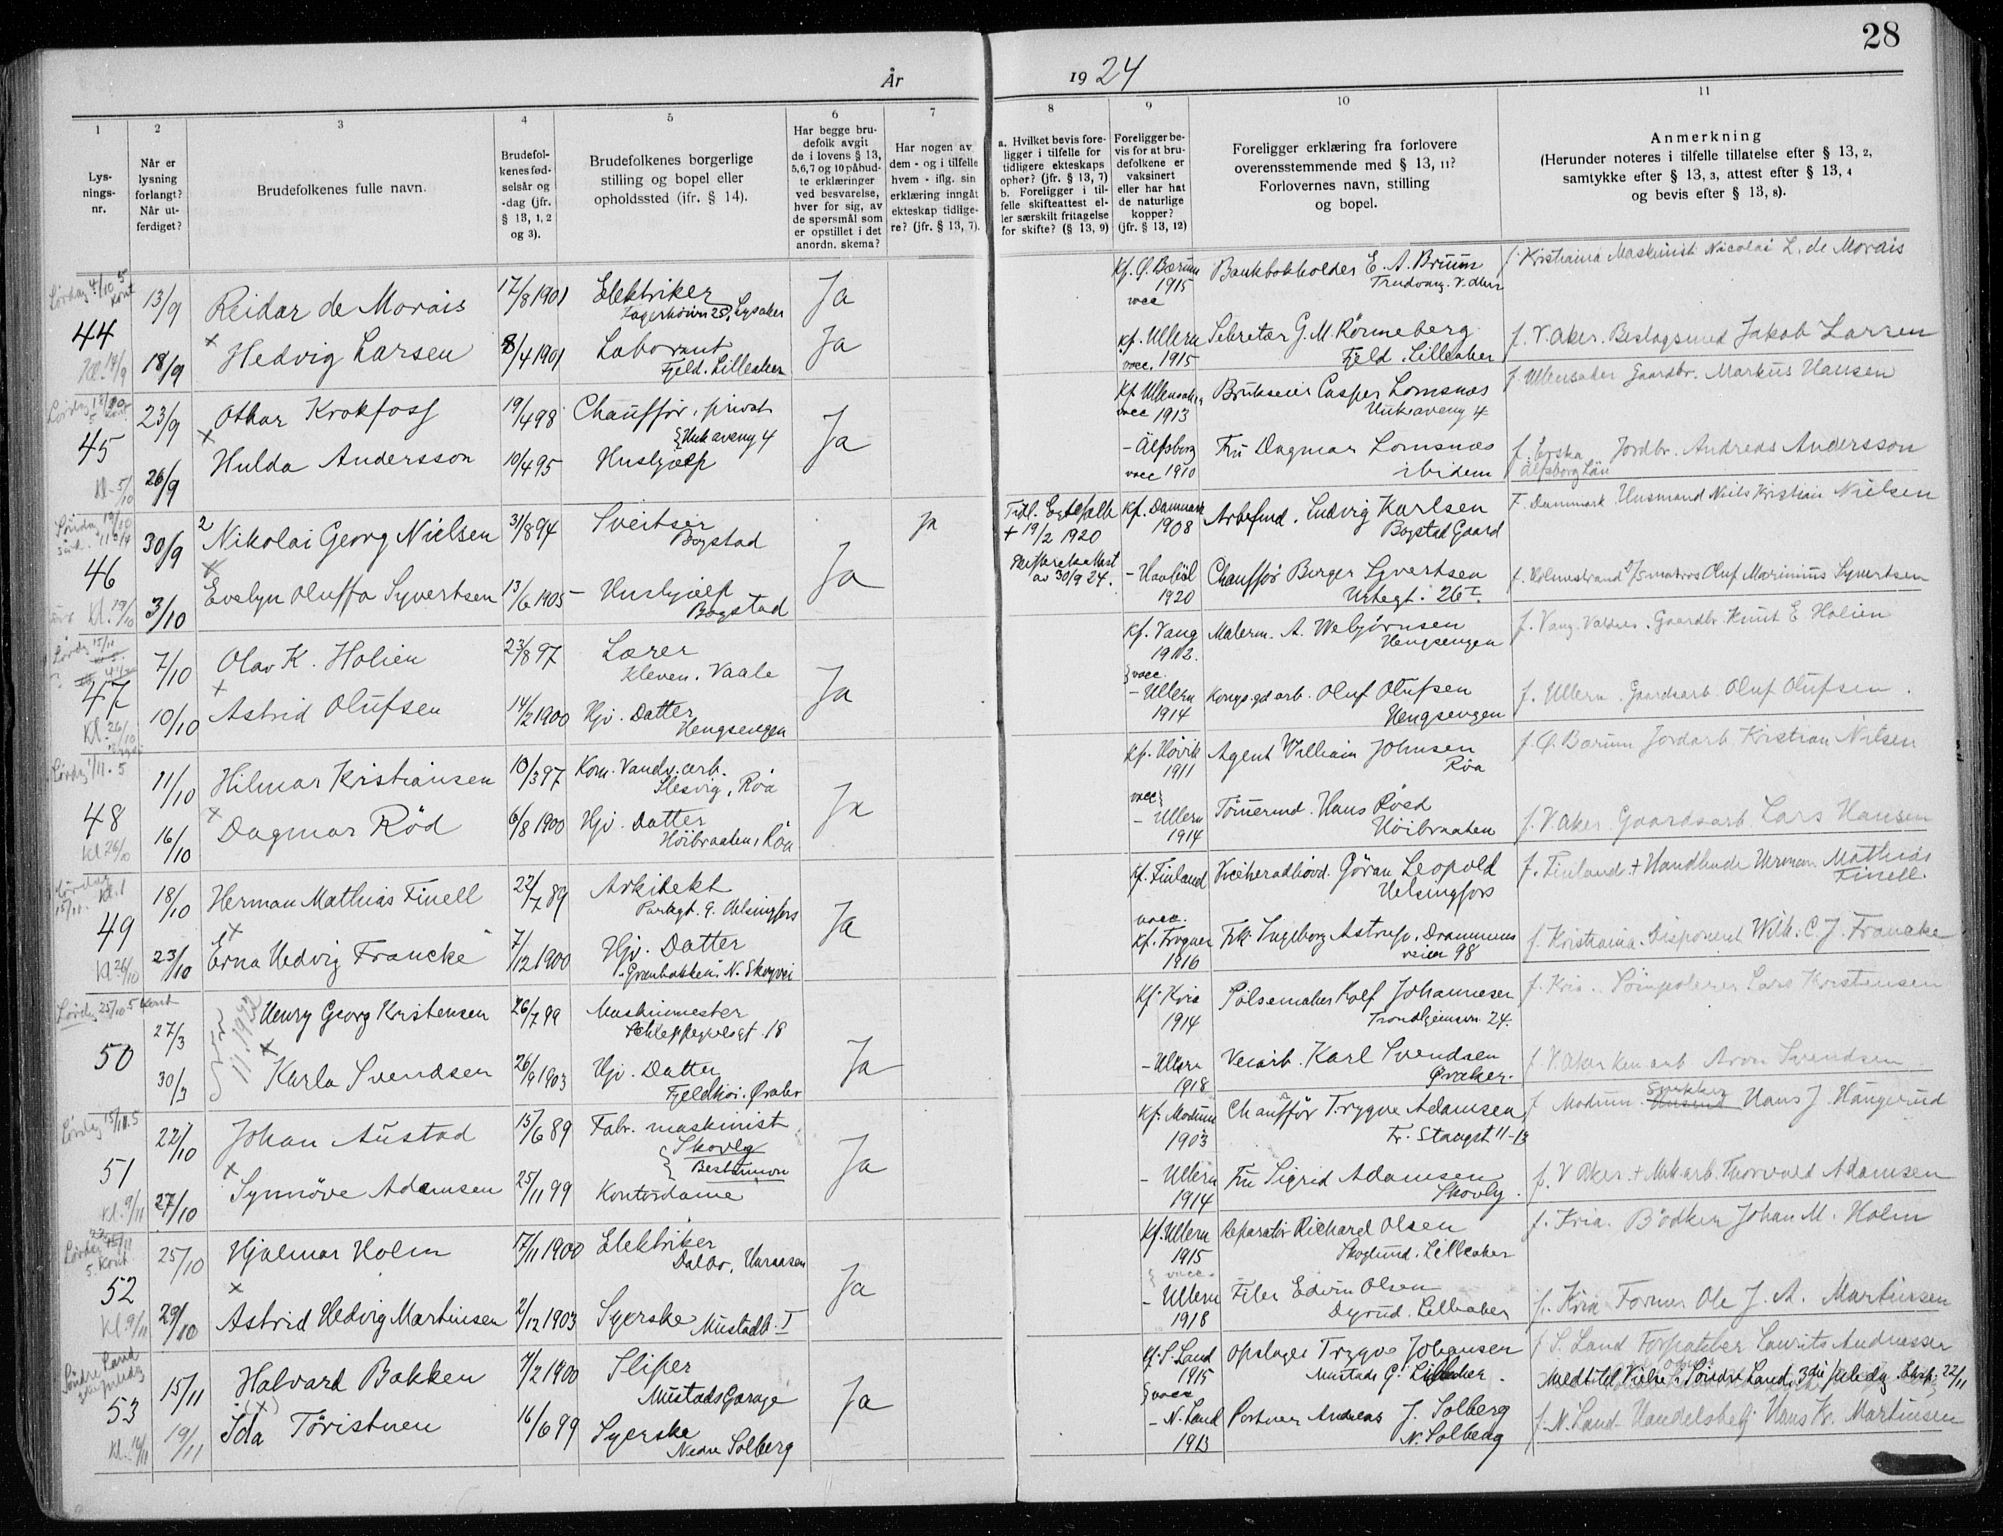 28
År
1924
1
2
3
4
5
6
7
8
9
10
11
Lys-
nings-
nr.
Når er
lysning
forlangt?
Når ut-
ferdiget?
Brudefolkenes fulle navn.
Brudefol-
kenes fød-
selsår og
-dag (jfr.
§ 13, 1, 2
og 3).
Brudefolkenes borgerlige
stilling og bopel eller
opholdssted (jfr. § 14).
Har begge bru-
defolk avgit
de i lovens § 13,
5,6,7 og 10 påbud-
te erklæringer
ved besvarelse,
hver for sig, av
de spørsmål som
er opstillet i det
anordn. skema?
Har nogen av
dem - og i tilfelle
hvem - iflg. sin
erklæring inngått
ekteskap tidlige-
re? (jfr. § 13, 7).
a. Hvilket bevis fore-
ligger i tilfelle for
tidligere ekteskaps
ophør? (jfr. § 13, 7)
b. Foreligger i til-
felle skifteattest el-
ler særskilt fritagelse
for skifte? (§ 13, 9)
Foreligger be-
vis for at bru-
defolkene er
vaksinert
eller har hat
de naturlige
kopper?
(jfr. § 13, 12)
Foreligger erklæring fra forlovere
overensstemmende med § 13, 11?
Forlovernes navn, stilling
og bopel.
Anmerkning
(Herunder noteres i tilfelle tillatelse efter § 13, 2,
samtykke efter § 13, 3, attest efter § 13, 4
og bevis efter § 13, 8).
Lørdag 4/10 5
44
13/9 Reidar de Morais 17/8 1901 Elektriker Ja
Fagerhøivn 25, Lysaker
Kf. Ø. Bærum 1915 vacc
Bankbokholder E. A. Bruun
f. Kristiania Maskinist Nicolai L. de Morais
18/9 Hedvig Larsen 8/4 1901 Laborant Ja
Fjeld. Lilleaker
Kf. Ullern vacc. 1915
Sekretær G. M. Rønneberg
Fjeld. Lilleaker
f. V. Aker. Beslagsmed Jakob Larsen
45
23/9 Othar Krokfoss 19/4 98 Chauffør, privat Ja
Kf. Ullensaker vacc 1913
Brukseier Casper Lomsnæs
f. Ullensaker Gaardbr. Markus Hansen
26/9 Hulda Andersson 10/4 95 Hushjælp
- Älfsborg vacc 1910
Fru Dagmar Lomsnæs
ibidem
Jordbr. Andreas Andersson
Älfsborg Län
46
30/9 2 Nikolai Georg Nielsen 31/8 94 Sveitser Ja ja
Bogstad
+ 19/2 1920
Kf. Danmark 1908
Arbefmd. Ludvig Karlsen
Bogstad Gaard
F. Danmark. Husmand Niels Kristian Nielsen
3/10 Evelyn Oluffa Syvertsen 13/6 1905 - Hushjælp
Bogstad
Skifteattest av 30/9 24.
1920
Chauffør Birger Syvertsen
Urtegt. 26 I.
f. Holmestrand Matros Oluf Marinius Syvertsen
47
7/10 Olav K. Holien 23/8 97 Lærer Ja
Kleven. Vaale
Kf. Vang 1912. vacc.
Malerm. A. Webjørnsen
Hengsengen
f. Vang. Valdres. Gaardbr. Knut E Holien
10/10 Astrid Olufsen 14/2 1900 Hjv. Datter
Hengsengen
- Ullern 1914
Kongsgd arb. Oluf Olufsen
Hengsengen
f. Ullern. Gaardsarb. Oluf Olufsen.
Lørdag 1/11. 5
48
11/10 Hilmar Kristiansen 10/3 97 Kom. Vandv. arb. Ja
Slesvig, Røa
Kf. Høvik 1911 vacc
Agent William Johnsen
Røa
f. Ø. Bærum Jordarb. Kristian Nilsen
16/10 Dagmar Rød 6/8 1900 Hjv. Datter
Høibraaten, Røa
- Ullern 1914
Tømermd. Hans Røed
Høibraaten
f. V. Aker. Gaardsarb. Lars Hansen
Kl 26/10
49
18/10 Herman Mathias Finell 22/7 89 Arkitekt Ja
Parkgt. 9. Helsingfors
Kf. Finland vacc.
Viceheradhövd. Göran Leopold
Helsingfors
f. Finland + Handlende Herman Mathias
Finell.
Kl 26/10
23/10 Erna Hedvig Francke 7/12 1900 Hjv. Datter
Granbakken, N. Skogvei
Kf. Frogner 1916
Frk. Ingeborg Astrup, Drammens
veien 98
f. Kristiania. Disponent Wilh. C. J. Francke
Lørdag 25/10 5 Kont
50
27/3 Henry Georg Kristensen 26/7 99 Maskinmester Ja
Schleppegrelsgt. 18
Kf. Kria 1914
Pølsemaker Rolf Johannesen
Trondhjemsvn. 24.
f. Kria. Lars Kristensen
30/3 Karla Svendsen 26/9 1903 Hjv. Datter
Fjeldhøi. Øraker
- Ullern 1918
Veiarb. Karl Svendsen
Øraker.
f. V. Aker Aron Svendsen
Lørdag 15/11. 5
51
22/10 Johan Austad 15/6 89 Fabr. maskinist Ja
Skovly
Bestumvn
Kf. Modum 1903
Chauffør Trygve Adamsen
f. Modum. Snekker Hans J. Haugerud
Kl. 9/11
27/10 Synnøve Adamsen 25/11 99 Kontordame
- Ullern 1914
Fru Sigrid Adamsen
Skovly.
f. V Aker. + Thorvald Adamsen
52
25/10 Hjalmar Holm 17/11 1900 Elektriker Ja
Dalbo, Harasen
Kf. Ullern 1915 vacc.
Reparatør Richard Olsen
Skoglund. Lilleaker
f. Kria. Bødker Johan M. Holm
Kl. 9/11
29/10 Astrid Hedvig Martinsen 2/12 1903 Syerske
Mustadb. I
- Ullern 1918
Filer Edvin Olsen
Dyrud. Lilleaker
f. Kria Former Ole J. A. Martinsen
Søndre Land
53
15/11 Halvard Bakken 4/2 1900 Sliper Ja
Mustads Garage
Kf. S. Land 1915 vacc
Opslager Trygve Johansen
Mustads G. Lilleaker.
f S. Land Laurits Andreassen
Medt. til Vielse i Søndre Land 3die juledag 22/11
19/11 Ida Tøristuen 16/6 99 Syerske
Nedre Solberg
- N. Land 1913
Portner Andreas J. Solberg
N. Solberg
f. N. Land Handelsbetj. Hans Kr. Martinsen